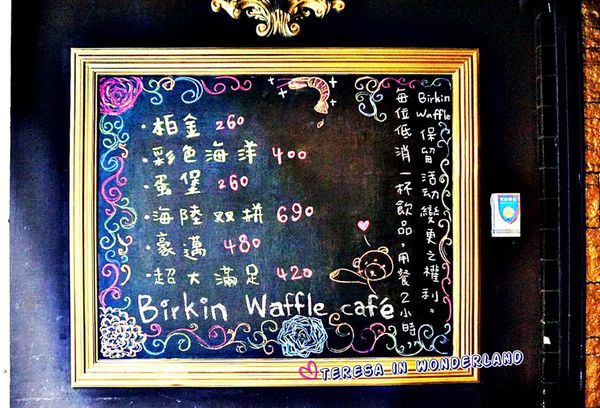 ·柏金 260
·彩色海洋 400
·蛋堡 260
·海陸双拼 690
·豪邁 480
·超大滿足 420
Birkin Waffle café
Birkin Waffle 保留活动變更之權利。
每位低消一杯飲品,用餐2小時,
TERESA IN WONDERLAND